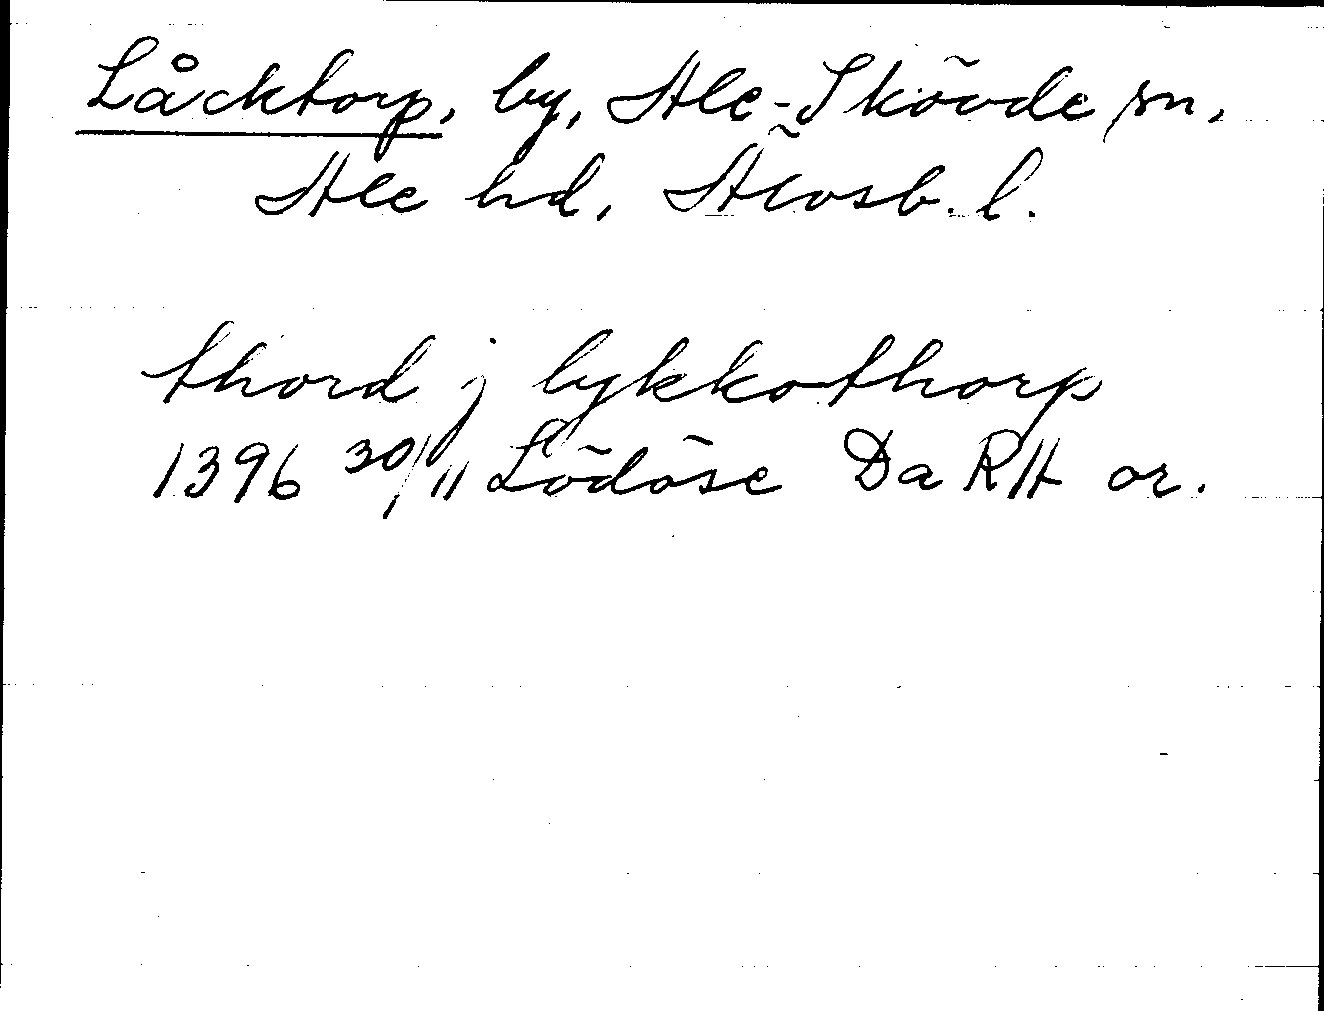 Låcktorp, by, Ale-Skövde sn,
Ale hd, Älvsb. l.
thord j lykkothorp
1396 30/11 Lödöse Da RA or.